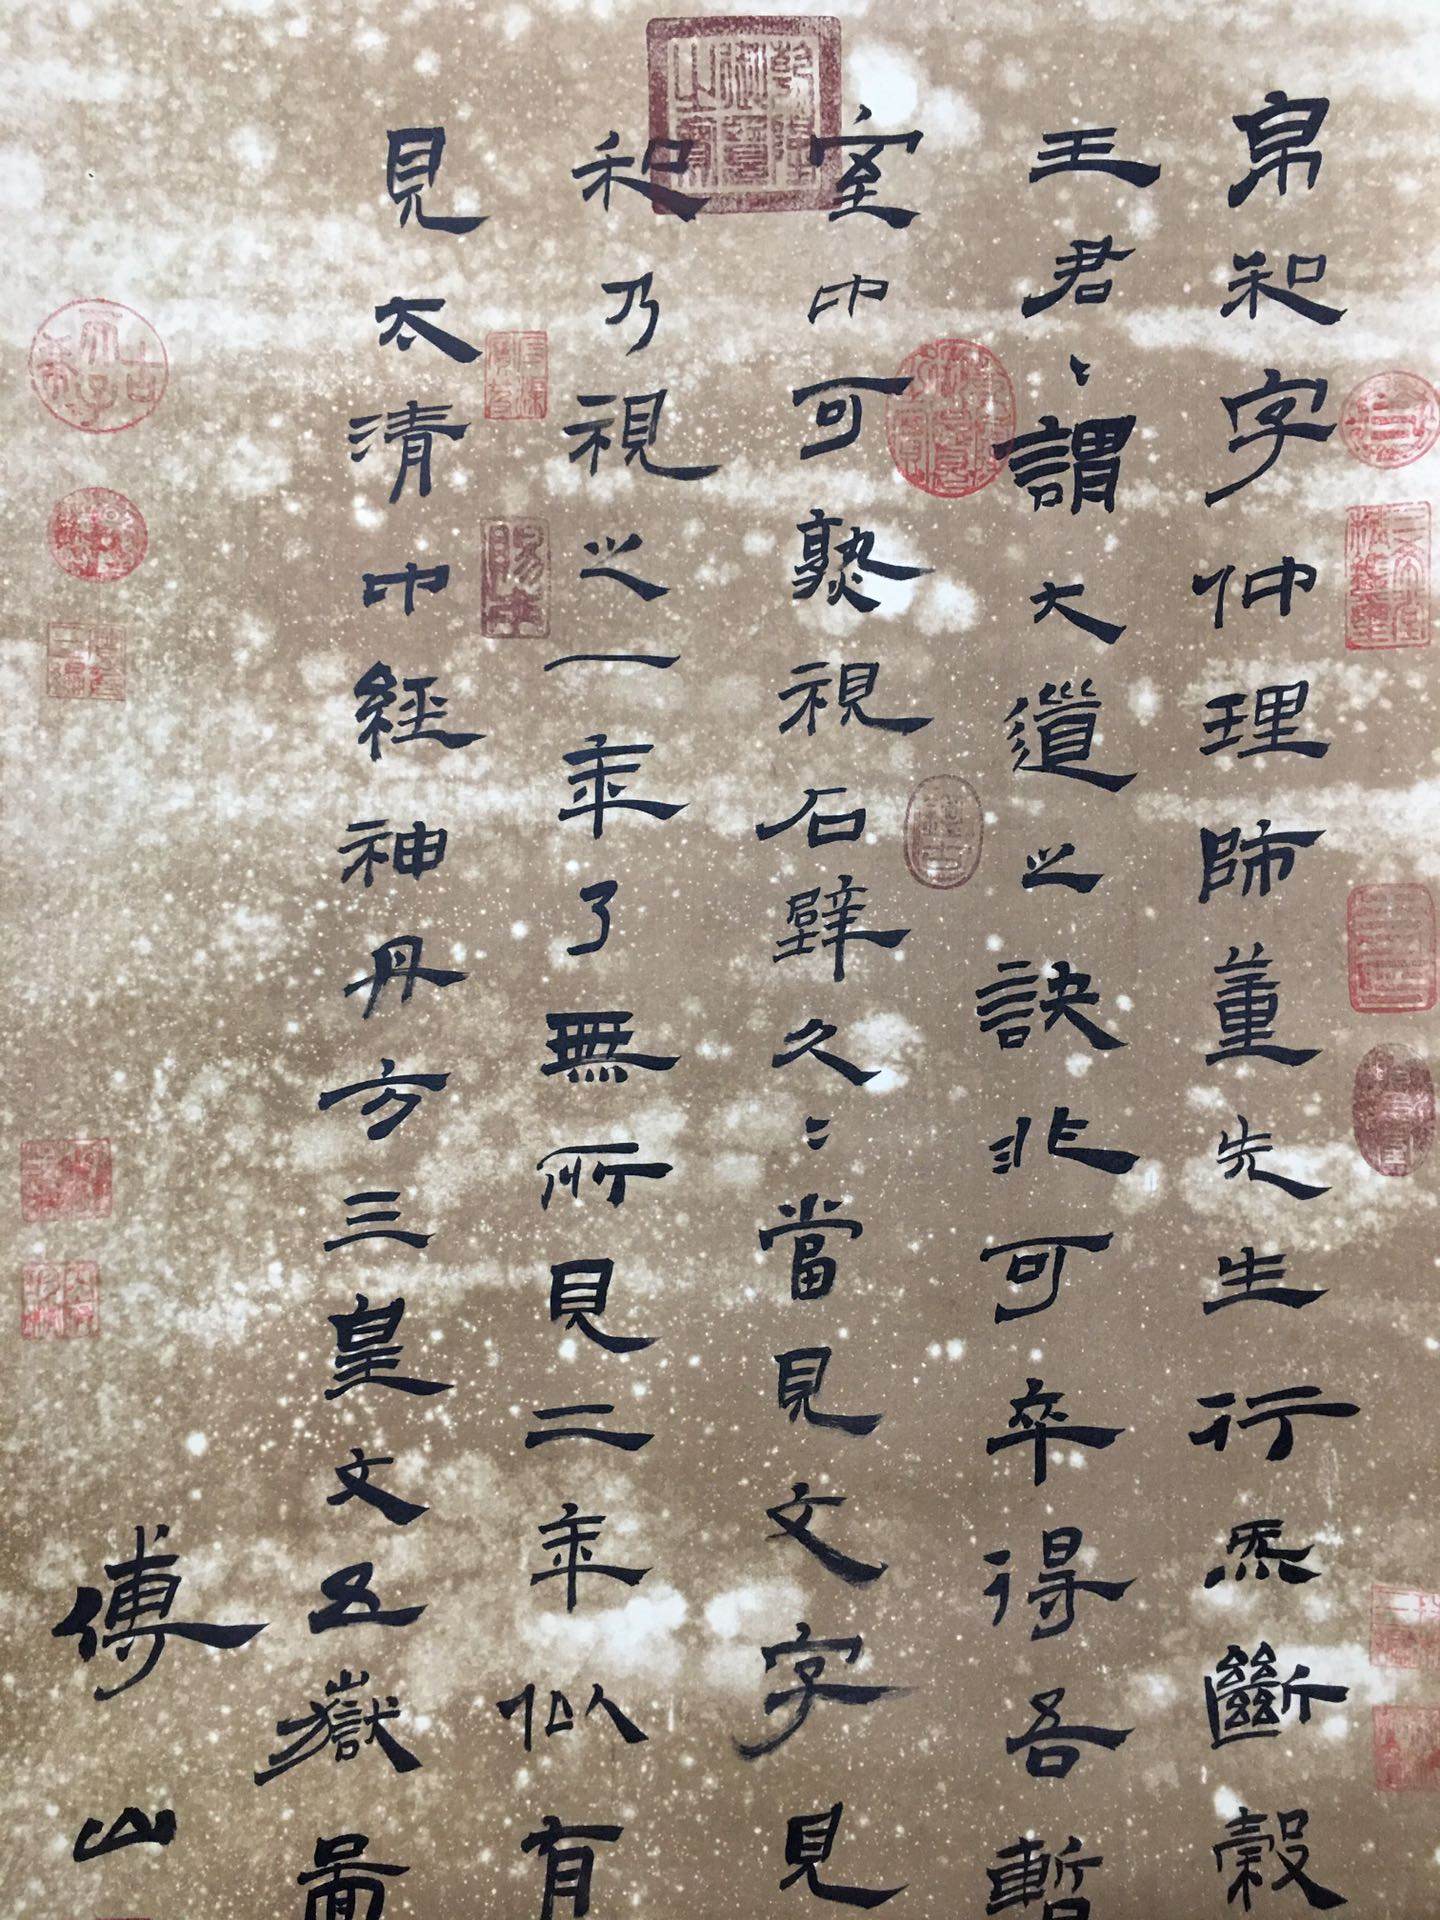 帛和字仲理師董先生行炁斷穀
王君〻謂大道之訣非可卒得吾暫
室中可熟視石壁久〻當見文字見
和乃視之一年了無所見二年似有
見太清中經神丹方三皇文五嶽圖
傅山
乾隆御覽之寶